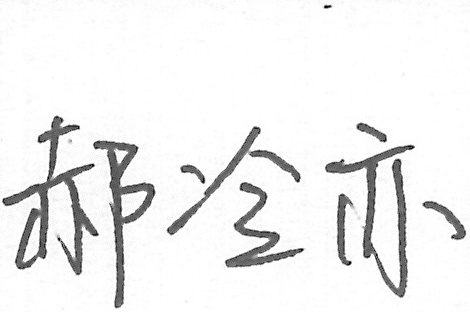 郝冷亦